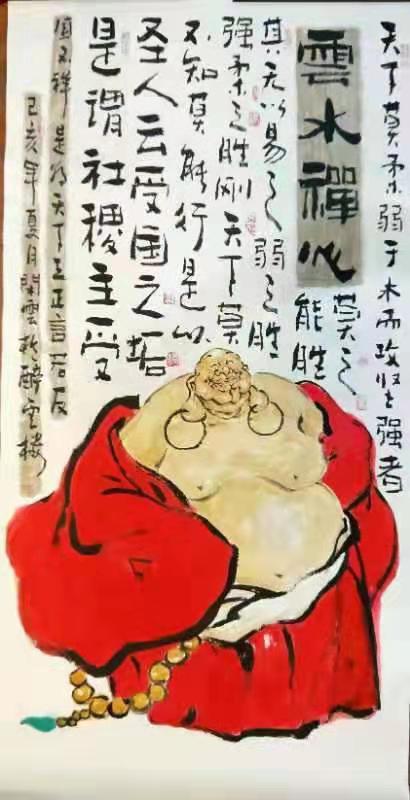 天下莫柔弱于水而攻坚强者
雲水禪心
莫之
能胜
其无以易之弱之胜
强柔之胜刚天下莫
不知莫能行是以
圣人云受国之垢
是谓社稷主受
国不祥是为天下王正言若反
己亥年夏月閑雲於醉空楼